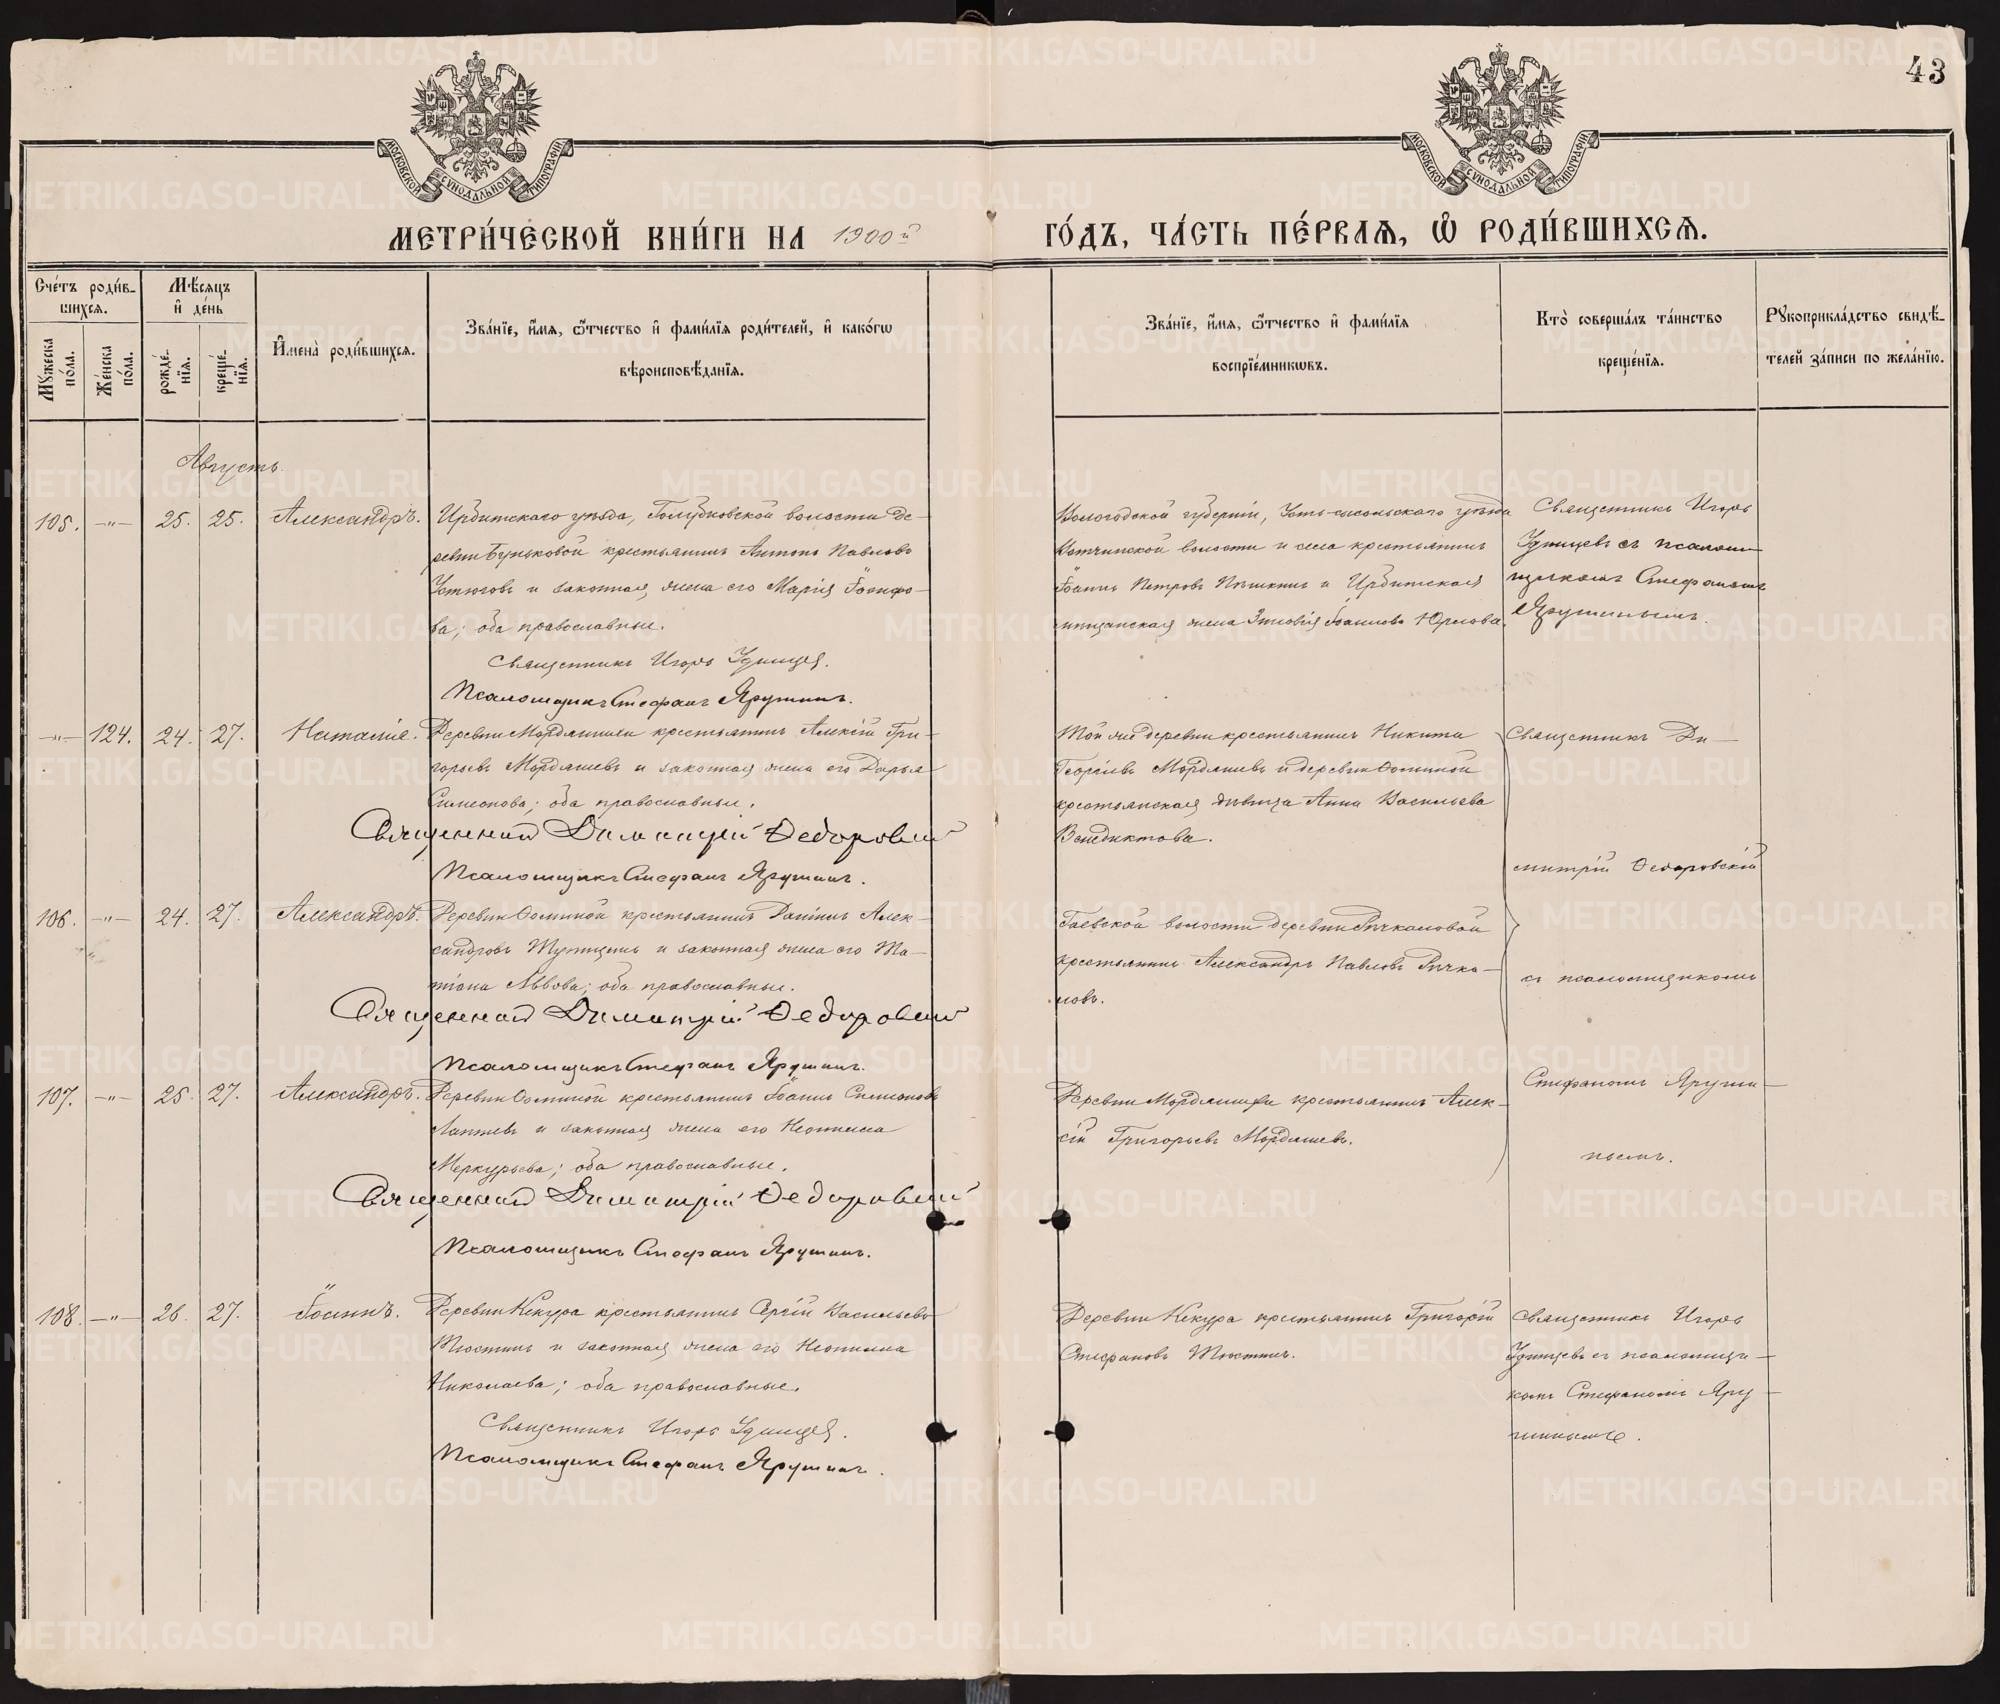 43
МОСКОВСКОЙ СУНОДАЛЬНОЙ ТИПОГРАФІИ
МОСКОВСКОЙ СУНОДАЛЬНОЙ ТИПОГРАФІИ
МЕТРИ́ЧЕСКОЙ КНИ́ГИ НА 1900й
ГО́ДЪ, ЧА́СТЬ ПЕ́РВАЯ, Ѡ РОДИ́ВШИХСЯ.
Сче́тъ роди́в-
шихся.
Мꙋжеска по́ла.
Же́нска по́ла.
Мѣ́сяцъ
и҆ де́нь
рожде́-
нїя.
креще́-
нїя.
И҆мена̀ роди́вшихся.
Зва́нїе, и҆́мя, ѻ҆́тчество и҆ фами́лїя роди́телей, и҆ како́гѡ
вѣроисповѣ́данїя.
Зва́нїе, и҆́мя, ѻ҆́тчество и҆ фами́лїя
воспрїе́мникѡвъ.
Кто̀ соверша́лъ та́инство
креще́нїя.
Рꙋкоприкла́дство свидѣ́-
телей за́писи по жела́нїю.
Августъ.
105. —"— 25. 25. Александръ.
Ирбитскаго уѣзда, Голубковской волости де-
ревни Буньковой крестьянинъ Антонъ Павловъ
Устюговъ и законная жена его Марія Іосифо-
ва; оба православные.
Священникъ Игорь Удинцев.
Псаломщикъ Стефанъ Ярушинъ.
Вологодской губерніи, Усть-сысольскаго уѣзда
волости и села крестьянинъ
Іоаннъ Петровъ Пѣшкинъ и Ирбитская
мѣщанская жена Зиновія Іоаннова Юрлова.
Священникъ Игорь
Удинцевъ съ псалом-
щикомъ Стефаномъ
Ярушинымъ.
—"— 124. 24. 27. Наталія.
Деревни Мордяшихи крестьянинъ Алексій Гри-
горьевъ Мордяшевъ и законная жена его Дарья
Симеонова; оба православные.
Священникъ Димитрій Федоровскій
Псаломщикъ Стефанъ Ярушинъ.
Той же деревни крестьянинъ Никита
Георгіевъ Мордяшевъ и деревни Ѳоминой
крестьянская дѣвица Анна Васильева
Венедиктова.
Священникъ Ди-
митрій Ѳедоровскій
съ псаломщикомъ
Стефаномъ Яруши-
нымъ.
106. —"— 24. 27. Александръ.
Деревни Ѳоминой крестьянинъ Даніилъ Алек-
сандровъ Тупицынъ и законная жена его Та-
тіана Львова; оба православные.
Священникъ Димитрій Федоровскій
Псаломщикъ Стефанъ Ярушинъ.
Гаевской волости деревни Речкаловой
крестьянинъ Александръ Павловъ Речка-
ловъ.
107. —"— 25. 27. Александръ.
Деревни Ѳоминой крестьянинъ Іоаннъ Симеоновъ
Лаптевъ и законная жена его Неонилла
Меркурьева; оба православные.
Священникъ Димитрій Федоровскій
Псаломщикъ Стефанъ Ярушинъ.
Деревни Мордяшихи крестьянинъ Алек-
сій Григорьевъ Мордяшевъ.
108. —"— 26. 27. Іоаннъ.
Деревни Кекура крестьянинъ Сергій Васильевъ
Тюстинъ и законная жена его Неонилла
Николаева; оба православные.
Священникъ Игорь Удинцев.
Псаломщикъ Стефанъ Ярушинъ.
Деревни Кекура крестьянинъ Григорій
Стефановъ Тюстинъ.
Священникъ Игорь
Удинцевъ съ псаломщи-
комъ Стефаномъ Яру-
шинымъ.
METRIKI.GASO-URAL.RU